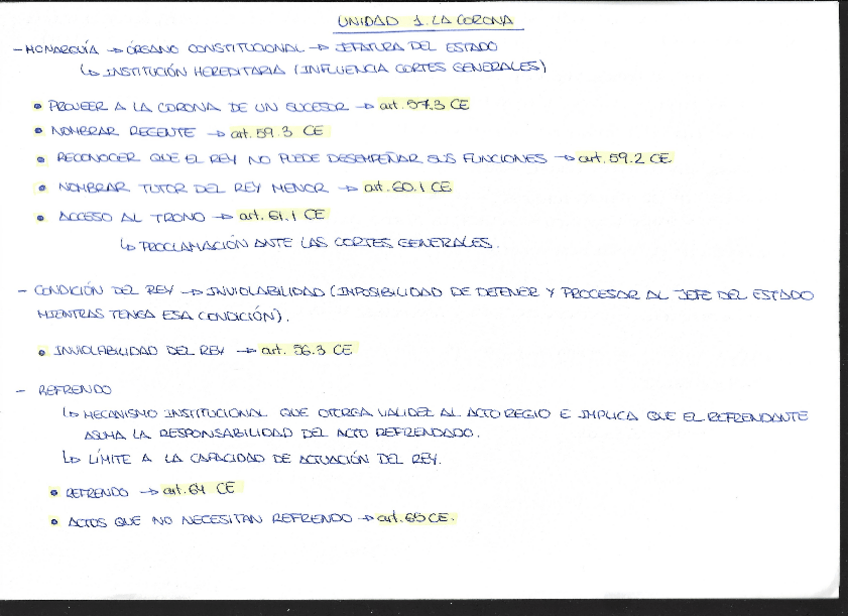 UNIDAD 1. LA CORONA
- MONARQUÍA → ÓRGANO CONSTITUCIONAL → JEFATURA DEL ESTADO
↳ INSTITUCIÓN HEREDITARIA (INFLUENCIA CORTES GENERALES)
• PROVEER A LA CORONA DE UN SUCESOR → art. 57.3 CE
• NOMBRAR REGENTE → art. 59.3 CE
• RECONOCER QUE EL REY NO PUEDE DESEMPEÑAR SUS FUNCIONES → art. 59.2 CE.
• NOMBRAR TUTOR DEL REY MENOR → art. 60.1 CE
• ACCESO AL TRONO → art. 61.1 CE
↳ PROCLAMACIÓN ANTE LAS CORTES GENERALES.
- CONDICIÓN DEL REY → INVIOLABILIDAD (IMPOSIBILIDAD DE DETENER Y PROCESAR AL JEFE DEL ESTADO
MIENTRAS TENGA ESA CONDICIÓN).
• INVIOLABILIDAD DEL REY → art. 56.3 CE
- REFRENDO
↳ MECANISMO INSTITUCIONAL QUE OTORGA VALIDEZ AL ACTO REGIO E IMPLICA QUE EL REFRENDANTE
ASUMA LA RESPONSABILIDAD DEL ACTO REFRENDADO.
↳ LÍMITE A LA CAPACIDAD DE ACTUACIÓN DEL REY.
• REFRENDO → art. 64 CE
• ACTOS QUE NO NECESITAN REFRENDO → art. 65 CE.